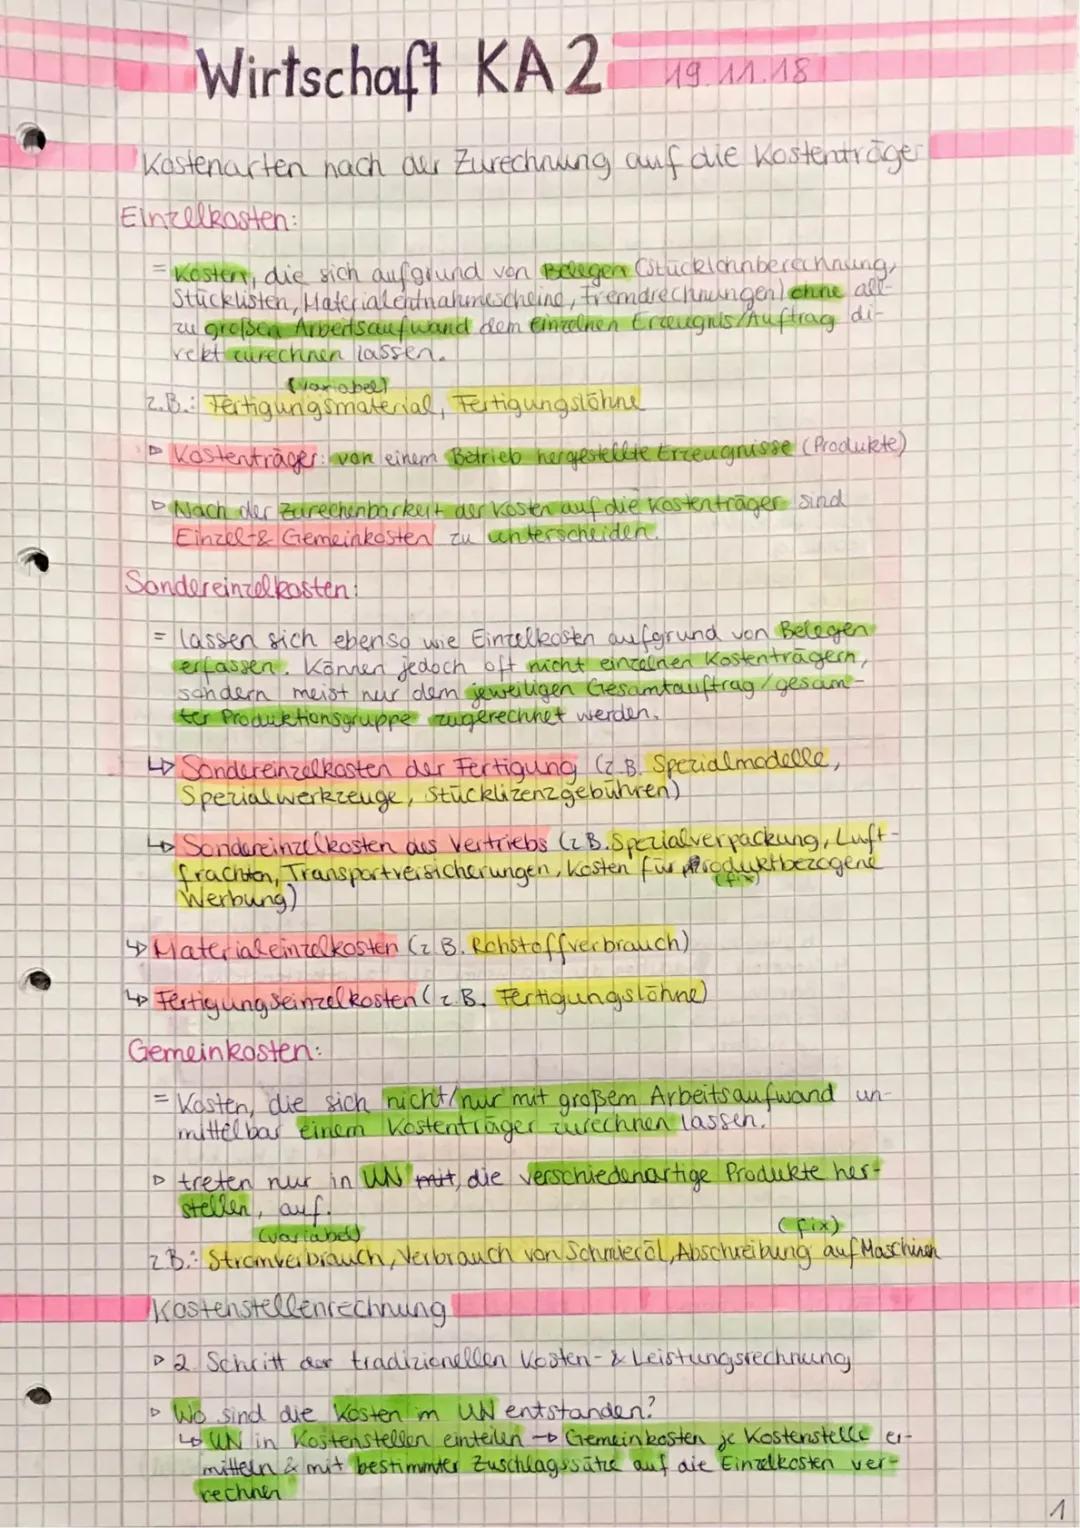 Wirtschaft KA2
19.11.18
Kostenarten nach der Zurechnung auf die Kostenträger
Einzelkosten:
= Kosten, die sich aufgrund von Belegen (Stücklohnberechnung,
Stücklisten, Materialentnahmescheine, Fremdrechnungen) ohne all-
zu großen Arbeitsaufwand dem einzelnen Erzeugnis/Auftrag di-
rekt zurechnen lassen.
(variabel)
z.B.: Fertigungsmaterial, Fertigungslöhne
▷ Kostenträger: von einem Betrieb hergestellte Erzeugnisse (Produkte)
▷ Nach der Zurechenbarkeit der Kosten auf die Kostenträger sind
Einzel- & Gemeinkosten zu unterscheiden.
Sondereinzelkosten:
= lassen sich ebenso wie Einzelkosten aufgrund von Belegen
erfassen. Können jedoch oft nicht einzelnen Kostenträgern,
sondern meist nur dem jeweiligen Gesamtauftrag/gesam-
ter Produktionsgruppe zugerechnet werden.
↳ Sondereinzelkosten der Fertigung (z.B. Spezialmodelle,
Spezialwerkzeuge, Stücklizenzgebühren)
↳ Sondereinzelkosten des Vertriebs (z.B. Spezialverpackung, Luft-
frachten, Transportversicherungen, Kosten für produktbezogene
(fix)
Werbung)
↳ Materialeinzelkosten (z.B. Rohstoffverbrauch)
↳ Fertigungseinzelkosten (z.B. Fertigungslöhne)
Gemeinkosten:
= Kosten, die sich nicht/nur mit großem Arbeitsaufwand un-
mittelbar einem Kostenträger zurechnen lassen.
▷ treten nur in UN mit, die verschiedenartige Produkte her-
stellen, auf.
(variabel) (fix)
z.B.: Stromverbrauch, Verbrauch von Schmieröl, Abschreibung auf Maschinen
Kostenstellenrechnung
▷ 2. Schritt der tradizionellen Kosten- & Leistungsrechnung
▷ Wo sind die Kosten im UN entstanden?
↳ UN in Kostenstellen einteilen → Gemeinkosten je Kostenstelle er-
mitteln & mit bestimmter Zuschlagssätze auf die Einzelkosten ver-
rechnen
1